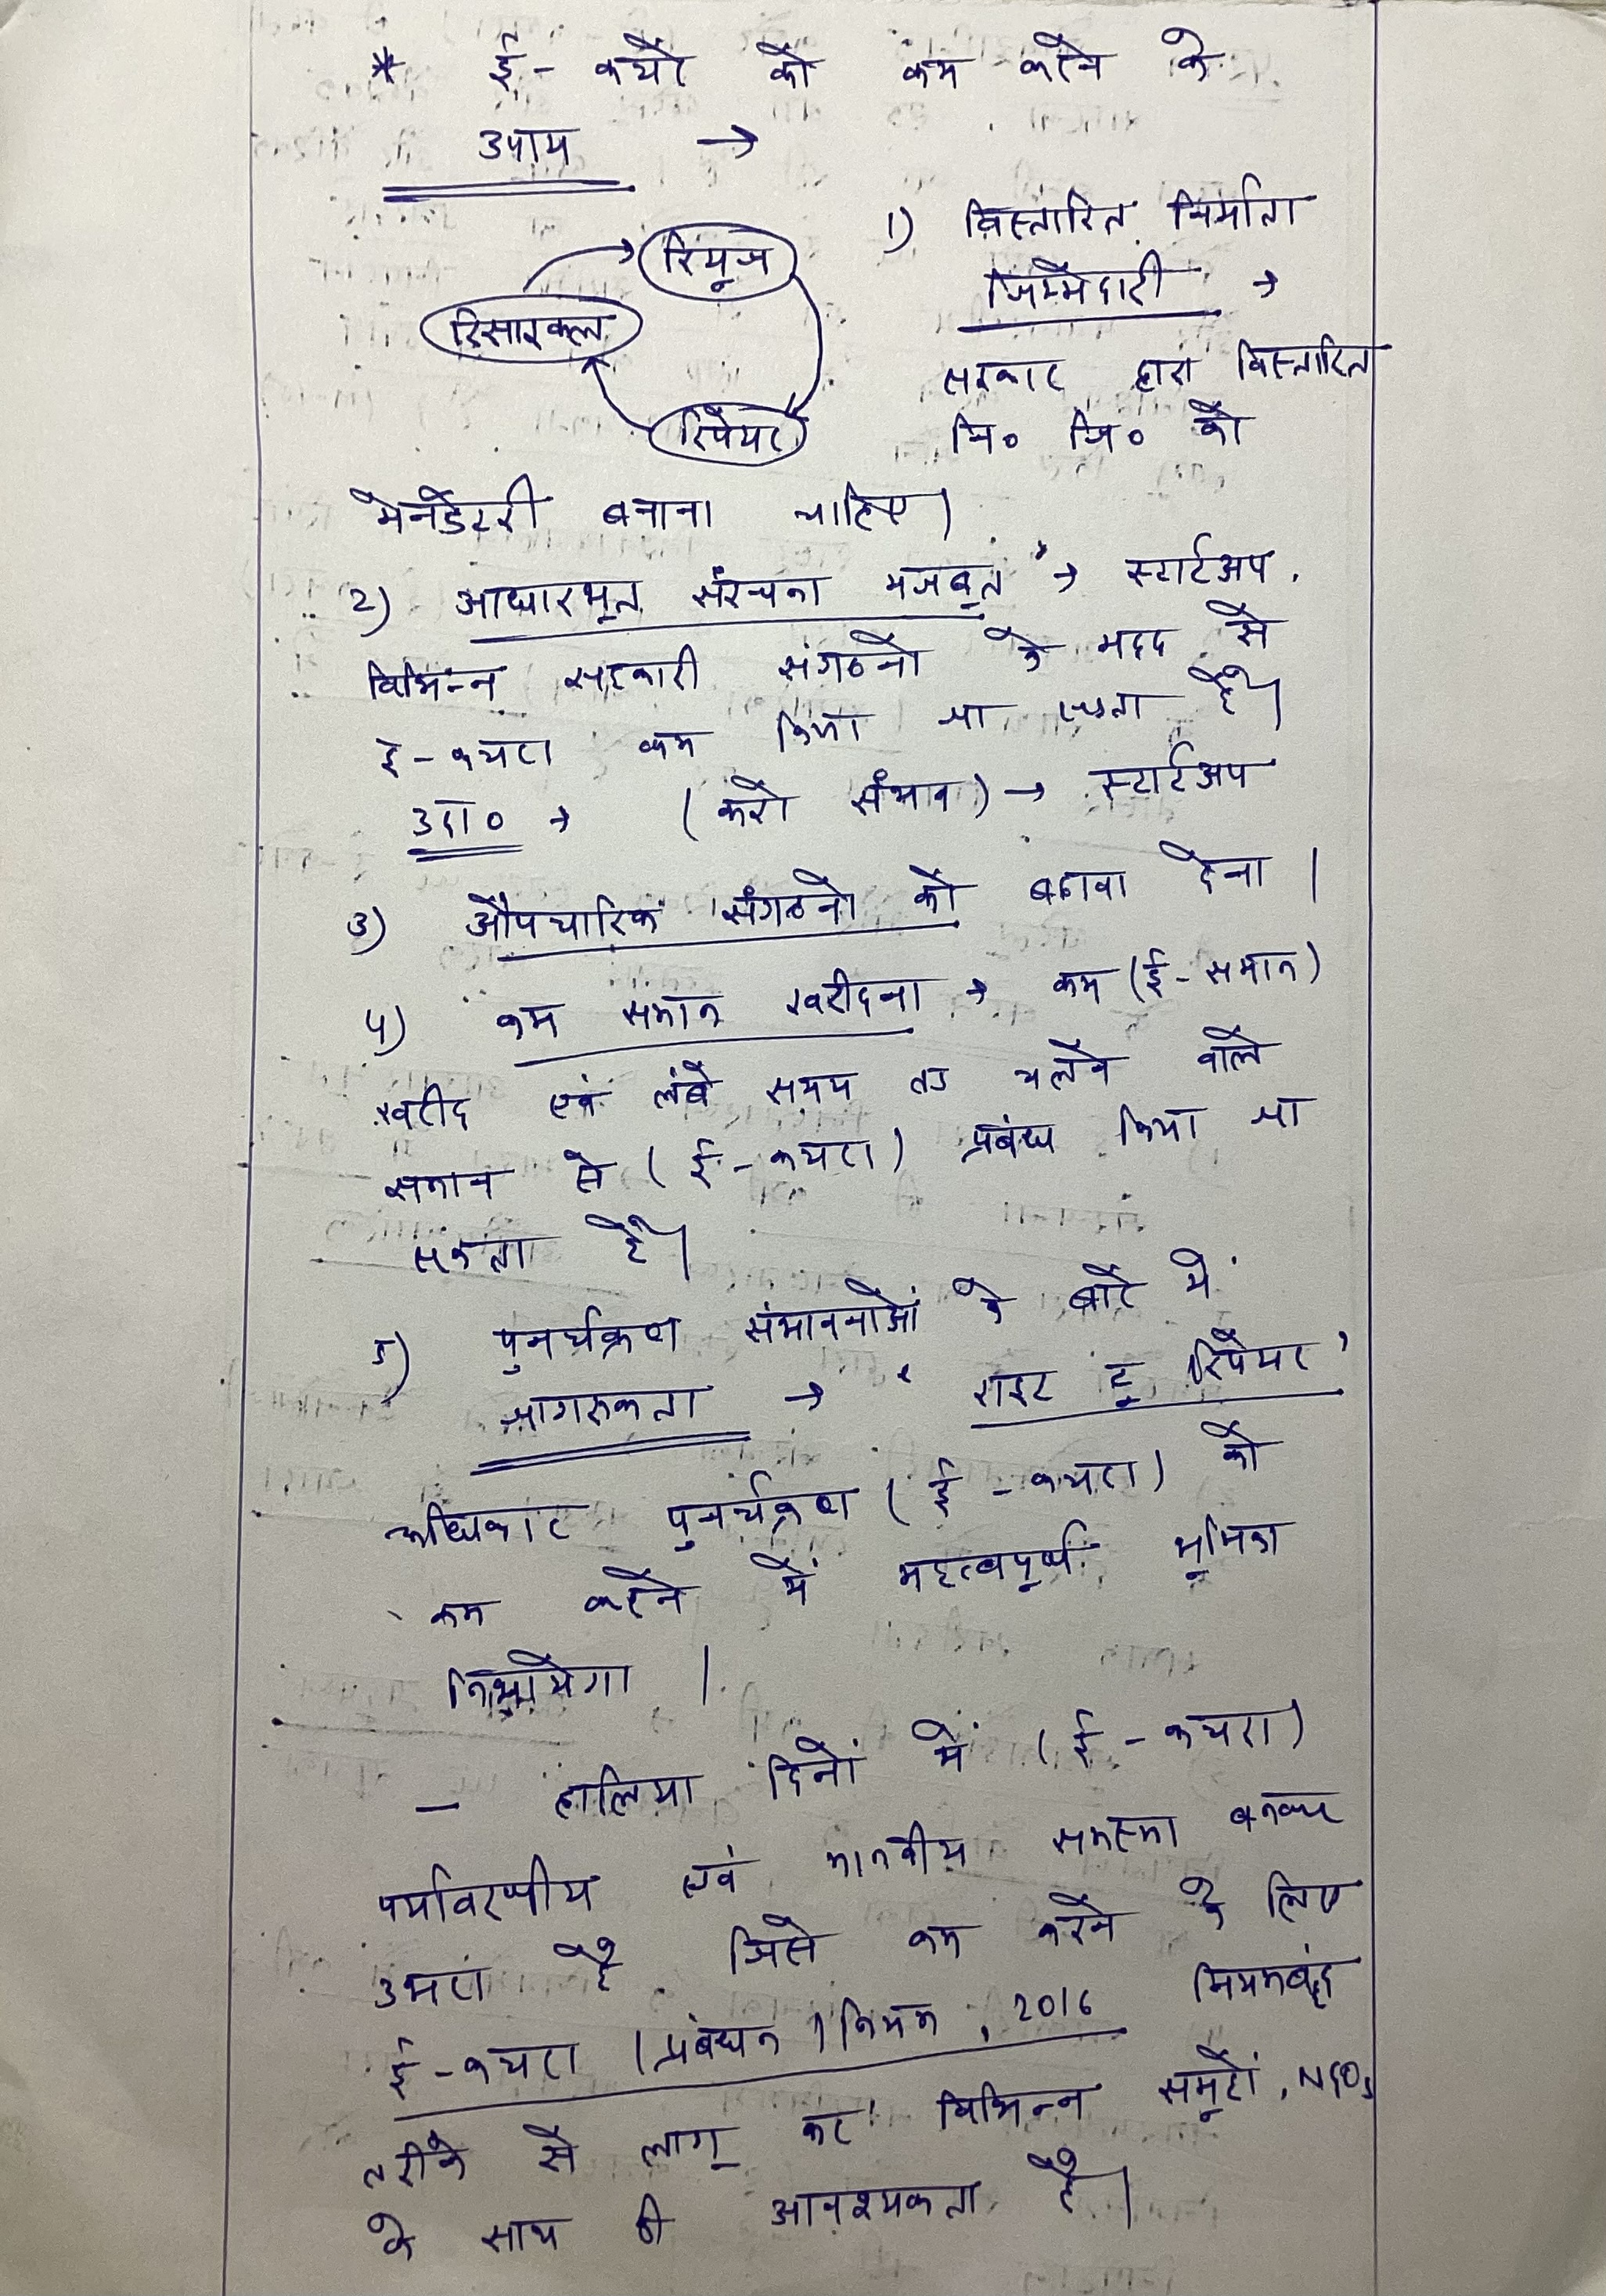 * ई - कचरे को कम करने के
उपाय →
रियूज
रिसाइकल
रिपेयर
1) विस्तारित निर्माता
जिम्मेदारी →
सरकार द्वारा विस्तारित
नि० जि० को
मेनडेटरी बनाना चाहिए।
2) आधारभूत संरचना मजबूत → स्टार्टअप,
विभिन्न सरकारी संगठनो के मदद से
ई - कचरा कम किया जा सकता है।
उदा० → (करो संभव) → स्टार्टअप
3) औपचारिक संगठनो को बढावा देना।
4) कम समान खरीदना → कम (ई - समान)
खरीद एवं लंबे समय तक चलने वाले
समान से (ई - कचरा) प्रबंध किया जा
सकता है।
5) पुनर्चक्रण संभावनाओं के बारे में
जागरूकता → ' राइट टू रिपेयर '
अधिकार पुनर्चक्रण (ई - कचरा) को
कम करने में महत्वपूर्ण भूमिका
निभायेगा।
- हालिया दिनों में (ई - कचरा)
पर्यावरणीय एवं मानवीय समस्या बनकर
उभरा है जिसे कम करने के लिए
ई - कचरा (प्रबंधन) नियम, 2016 नियमबद्ध
तरीके से लागू कर विभिन्न समूहों, NGOs
के साथ की आवश्यकता है।